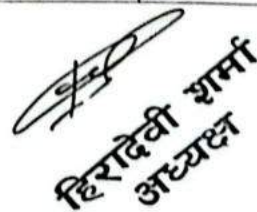 हिरादेवी शर्मा
अध्यक्ष